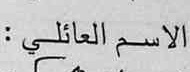 الاسم العائلي :